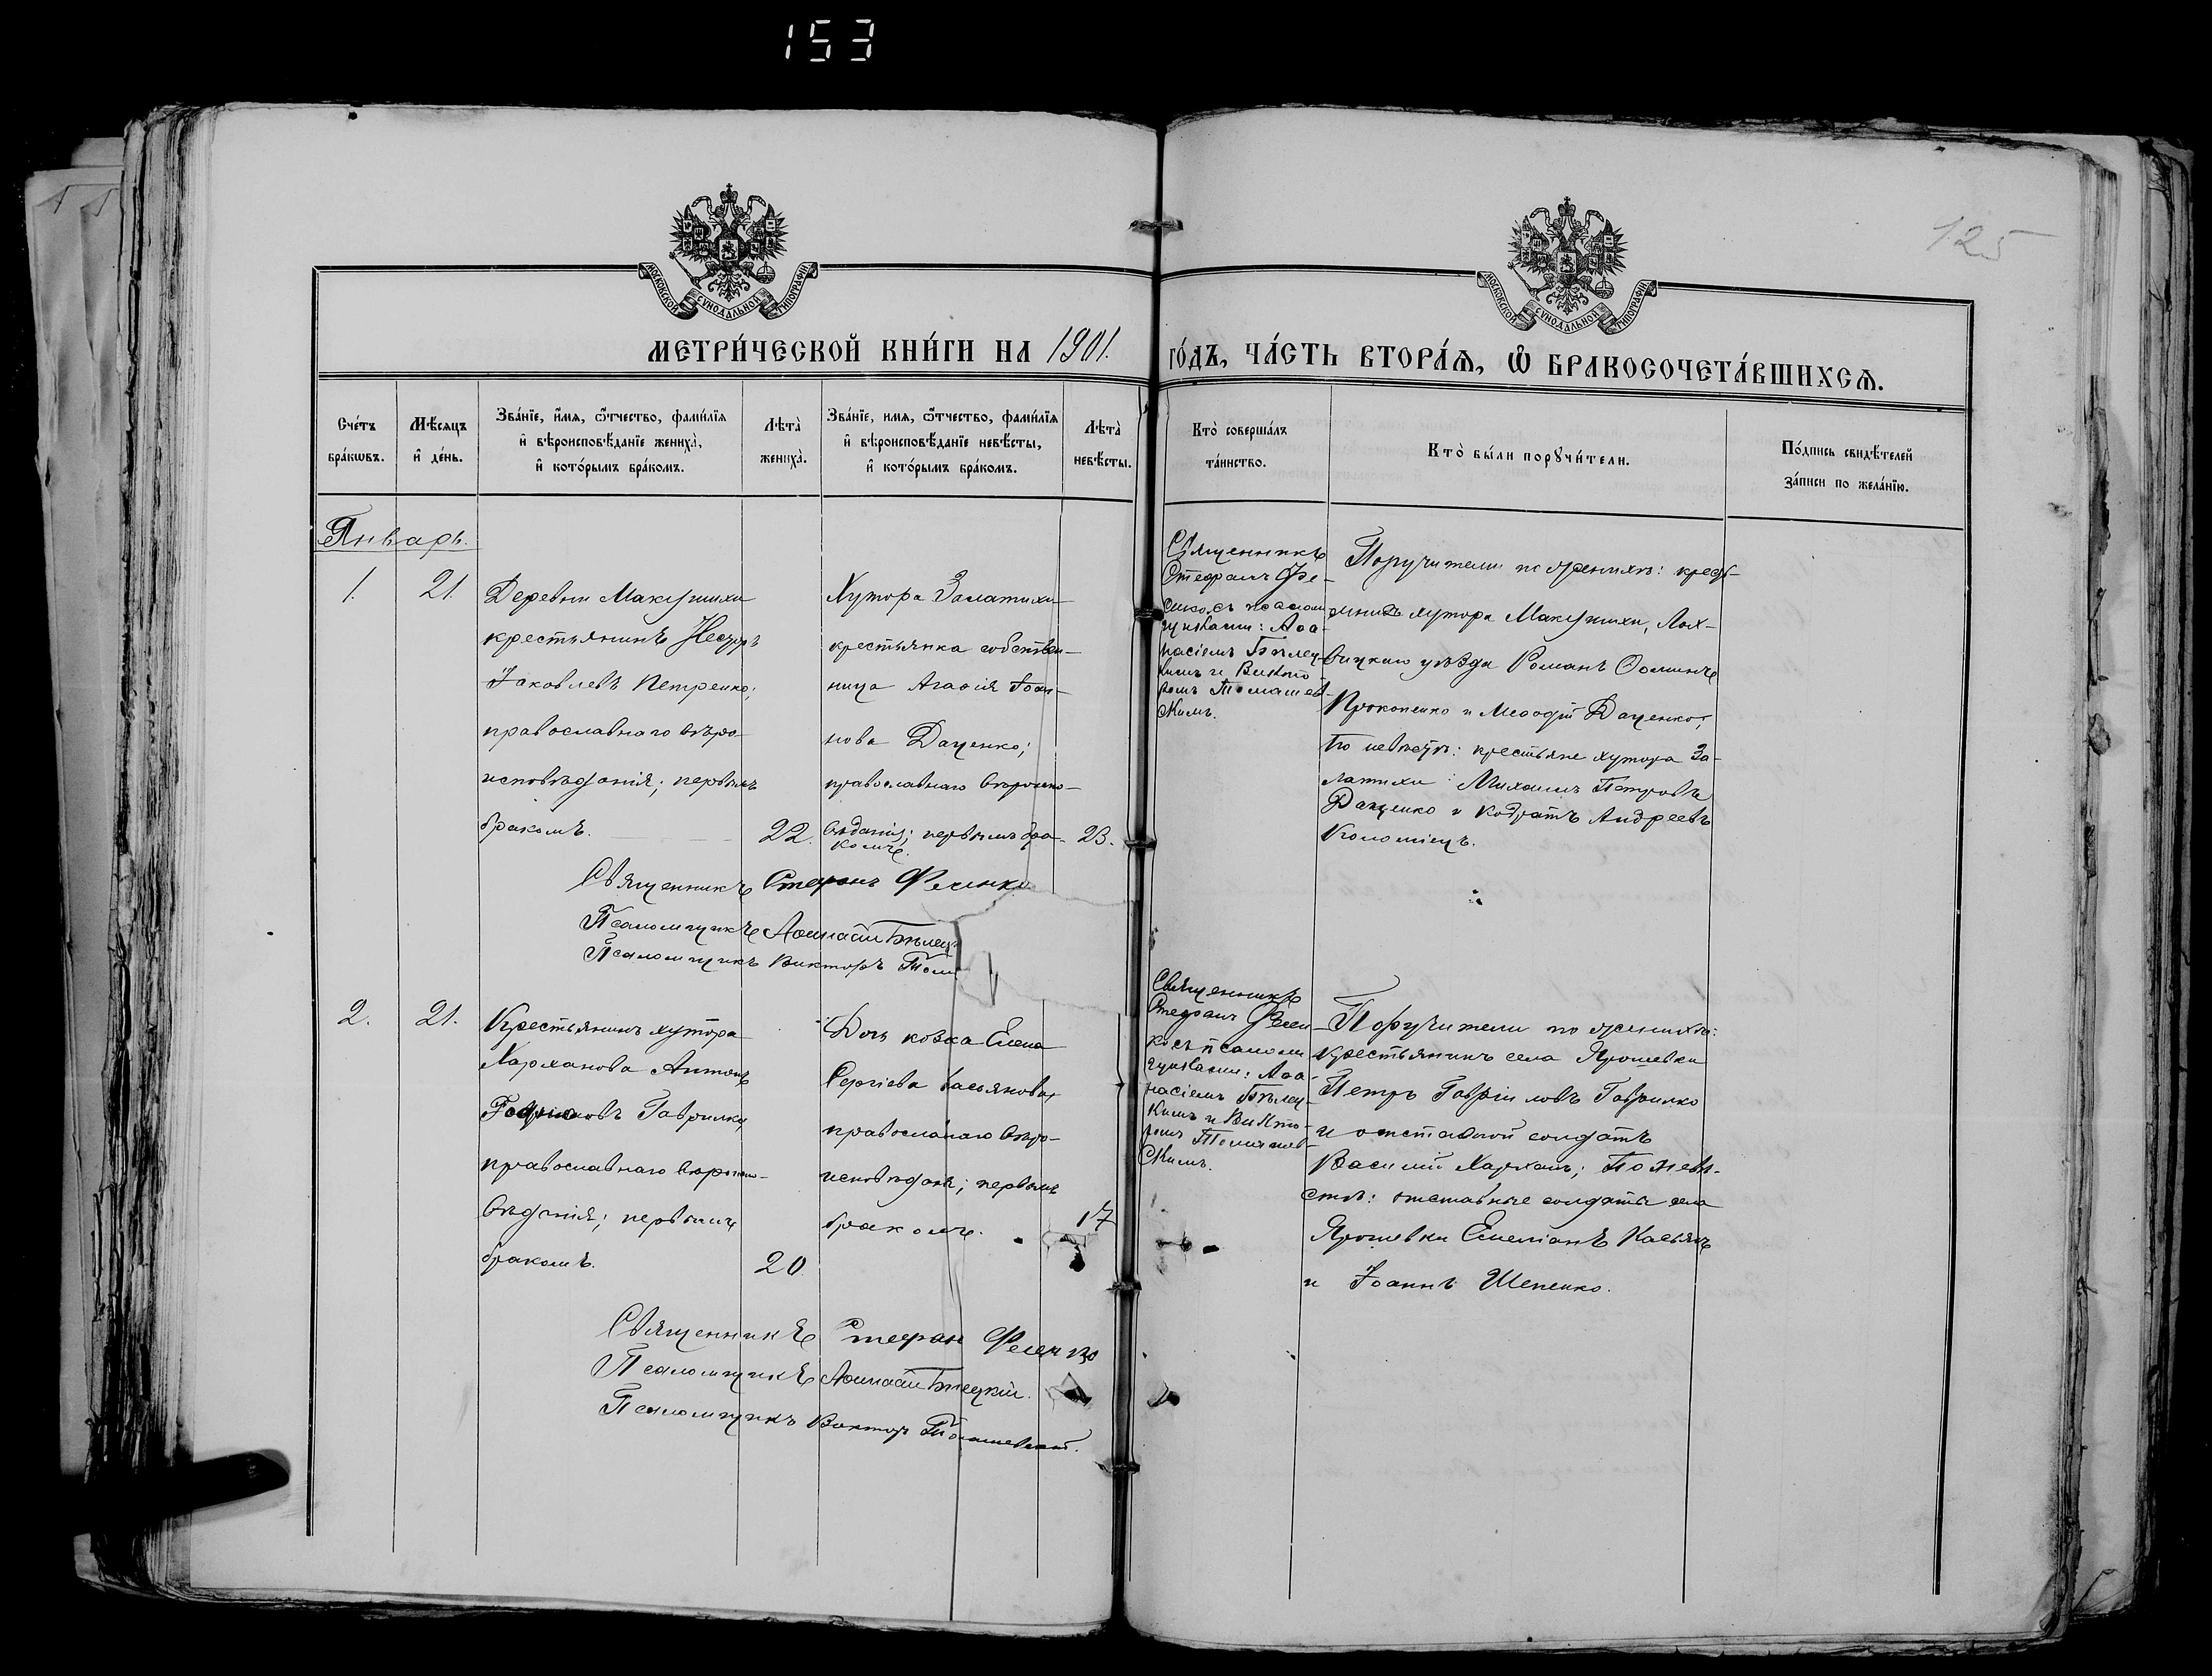 153
125
МОСКОВСКОЙ СѴНОДАЛЬНОЙ ТИПОГРАФІИ
МОСКОВСКОЙ СѴНОДАЛЬНОЙ ТИПОГРАФІИ
МЕТРИ́ЧЕСКОЙ КНИ́ГИ НА 1901. ГО́ДЪ, ЧА́СТЬ ВТОРА́Ѧ, Ѽ БРАКОСОЧЕТА́ВШИХСѦ.
Сче́тъ
бра́кѡвъ.
Мѣ́сяцъ
и҆ де́нь.
Зва́нїе, и҆́мя, ѻ҆́тчество, фами́лїя
и҆ вѣроисповѣ́данїе жениха̀,
и҆ кото́рымъ бра́комъ.
Лѣта̀
жениха̀.
Зва́нїе, имя, ѻ҆́тчество, фами́лїя
и҆ вѣроисповѣ́данїе невѣ́сты,
и҆ кото́рымъ бра́комъ.
Лѣта̀
невѣ́сты.
Кто̀ соверша́лъ
та́инство.
Кто̀ бы́ли порꙋчи́тели.
По́дпись свидѣ́телей
за́писи по жела́нїю.
Январь.
1.
21.
Деревни Макушихи
крестьянинъ
Іаковлевъ Петренко;
православнаго вѣро-
исповѣданія; первымъ
бракомъ.
22.
Хутора Залатихи
крестьянка собствен-
ница Агаѳія Іоан-
нова Даценко;
православнаго вѣроиспо-
вѣданія; первымъ бра-
комъ.
23.
Священникъ
Стефанъ Фе-
сенко съ псалом-
щиками: Аѳа-
насіемъ Бѣлец-
кимъ и Викто-
ромъ Томашев-
скимъ.
Поручители по женихѣ: кресть-
яне хутора Макушихи, Лох-
вицкаго уѣзда Романъ Ѳоминъ
Прокопенко и Меѳодій Даценко;
по невѣстѣ: крестьяне хутора За-
латихи: Михаилъ Петровъ
Даценко и Кодратъ Андреевъ
Коломіецъ.
Священникъ Стефанъ Фесенко
Псаломщикъ Аѳанасій Бѣлец
Псаломщикъ Викторъ Том
2.
21.
Крестьянинъ хутора
Харханова Антонъ
Гаврилко,
православнаго вѣроиспо-
вѣданія; первымъ
бракомъ.
20
Дочь козака Елена
Сергіева Касьянова,
православнаго вѣро-
исповѣданія; первымъ
бракомъ.
17
Священникъ
Стефанъ Фесен-
ко съ псалом-
щиками: Аѳа-
насіемъ Бѣлец-
кимъ и Викто-
ромъ Томашев-
скимъ.
Поручители по женихѣ:
крестьянинъ села Ярошевки
Петръ Гавріиловъ Гаврилко
и отставной солдатъ
Василій Харханъ; по невѣ-
стѣ: отставные солдаты села
Ярошевки Емеліанъ Касьянъ
и Іоаннъ Шепенко.
Священникъ Стефан Фесенко
Псаломщикъ Аѳанасій Бѣлецкій.
Псаломщикъ Викторъ Томашевскій.